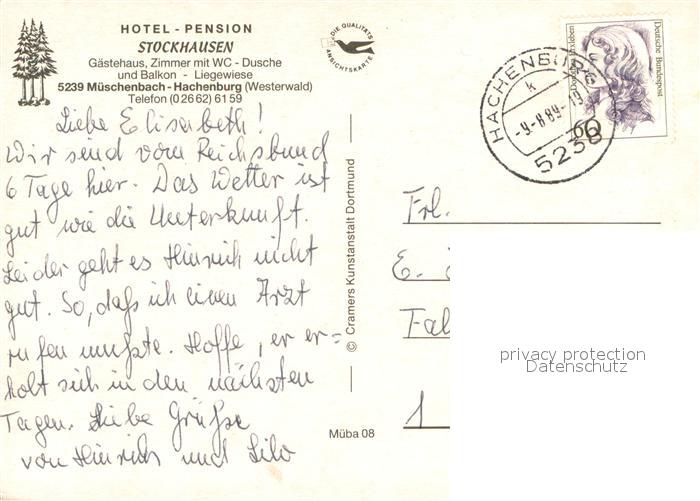 HOTEL - PENSION
STOCKHAUSEN
Gästehaus, Zimmer mit WC - Dusche
und Balkon - Liegewiese
5239 Müschenbach - Hachenburg (Westerwald)
Telefon (0 26 62) 61 59
DIE QUALITÄTS
ANSICHTSKARTE
Liebe Elisabeth!
Wir sind vom Reichsbund
6 Tage hier. Das Wetter ist
gut wie die Unterkunft.
Leider geht es Heinrich nicht
gut. So, daß ich einen Arzt
rufen mußte. Hoffe, er er=
holt sich in den nächsten
Tagen. Liebe Grüße
von Heinrich und Lilo
© Cramers Kunstanstalt Dortmund
Müba 08
HACHENBURG
k
-9.-8.89-19
5238
Deutsche Bundespost
60
Frl.
E.
1
privacy protection
Datenschutz